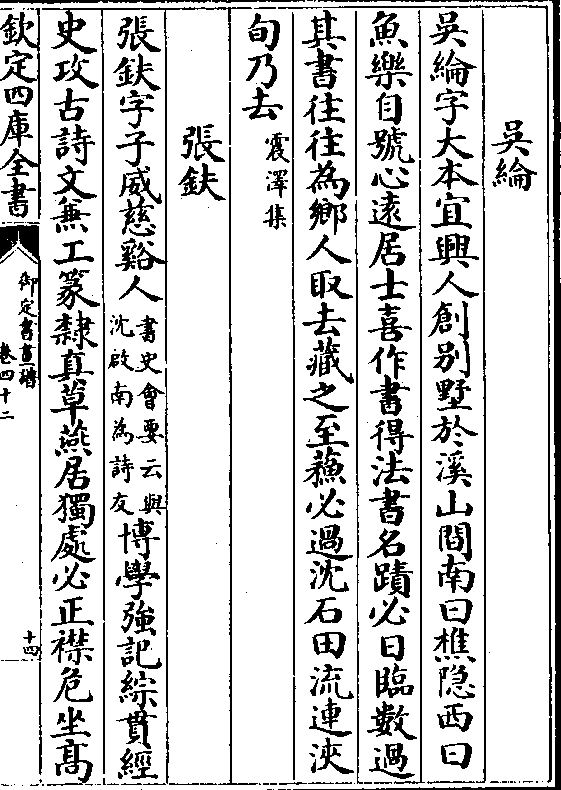 吳綸
吳綸字大本宜興人創别墅於溪山間南曰樵隐西曰
魚樂自號心遠居士喜作書得法書名蹟必日臨數過
其書往往為鄉人取去藏之至蘓必過沈石田流連浹
旬乃去 震澤集
張鈇
張鈇字子威慈谿人 書史會要云與沈啟南為詩友 博學強記綜貫經
史攻古詩文兼工篆隸真草燕居獨處必正襟危坐髙
欽定四庫全書 御定書畫譜 卷四十二 十四